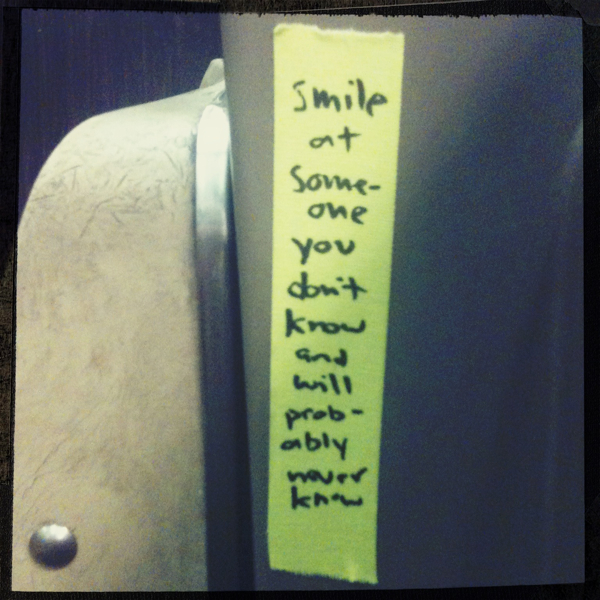 smile
at
some-
one
you
don't
know
and
will
prob-
ably
never
know